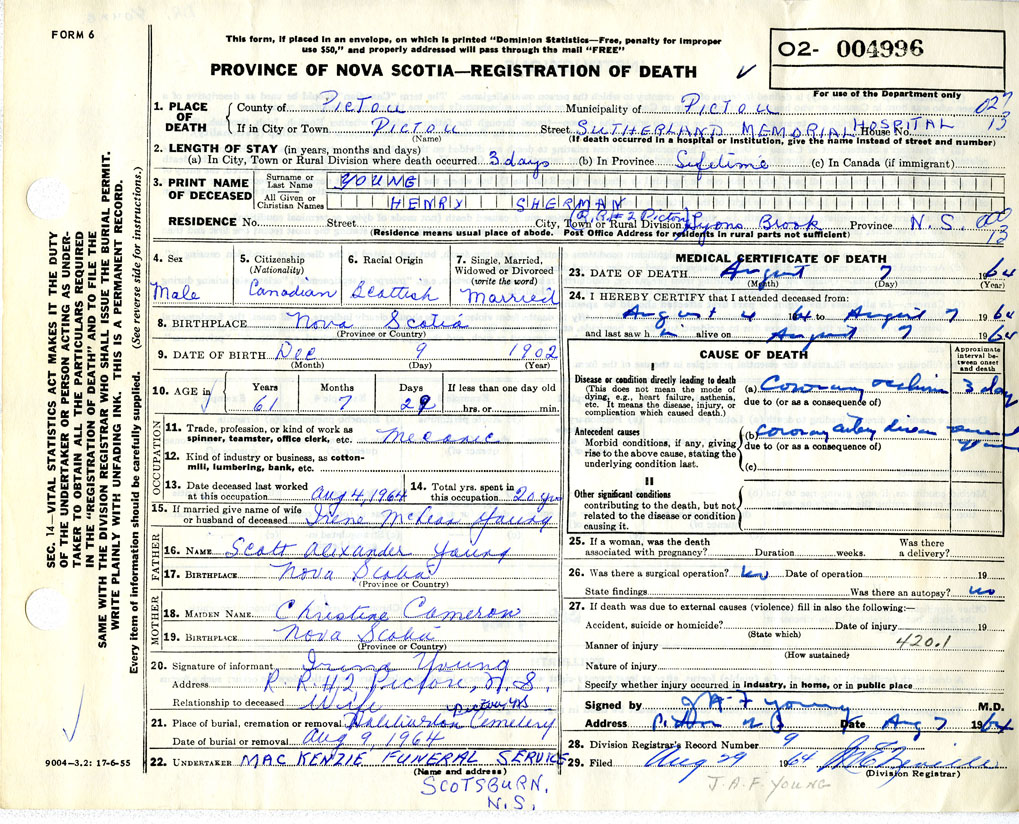 FORM 6
This form, if placed in an envelope, on which is printed "Dominion Statistics—Free, penalty for improper
use $50," and properly addressed will pass through the mail "FREE"
PROVINCE OF NOVA SCOTIA—REGISTRATION OF DEATH
02- 004996
For use of the Department only
1. PLACE OF DEATH County of PICTOU Municipality of PICTOU 027
If in City or Town PICTOU Street SUTHERLAND MEMORIAL HOSPITAL House No. 13
(Name) (If death occurred in a hospital or institution, give the name instead of street and number)
2. LENGTH OF STAY (in years, months and days)
(a) In City, Town or Rural Division where death occurred 3 days (b) In Province Lifetime (c) In Canada (if immigrant)
3. PRINT NAME OF DECEASED Surname or Last Name YOUNG
All Given or Christian Names HENRY SHERMAN
RESIDENCE No. Street City, Town or Rural Division (R.R.#2 Pictou) Lyons Brook Province N.S. 000
(Residence means usual place of abode. Post Office Address for residents in rural parts not sufficient) 13
4. Sex Male
5. Citizenship (Nationality) Canadian
6. Racial Origin Scottish
7. Single, Married, Widowed or Divorced (write the word) Married
8. BIRTHPLACE Nova Scotia
(Province or Country)
9. DATE OF BIRTH Dec 9 1902
(Month) (Day) (Year)
10. AGE in Years 61 Months 7 Days If less than one day old hrs. or min.
OCCUPATION
11. Trade, profession, or kind of work as spinner, teamster, office clerk, etc. Mecanic
12. Kind of industry or business, as cotton-mill, lumbering, bank, etc.
13. Date deceased last worked at this occupation Aug 4, 1964 14. Total yrs. spent in this occupation 20 yrs
15. If married give name of wife or husband of deceased Irene McLean Young
FATHER
16. NAME Scott Alexander Young
17. BIRTHPLACE Nova Scotia
(Province or Country)
MOTHER
18. MAIDEN NAME Christine Cameron
19. BIRTHPLACE Nova Scotia
(Province or Country)
20. Signature of informant Young
Address R.R.#2 Pictou, N.S.
Relationship to deceased Wife
21. Place of burial, cremation or removal Cemetery Pictou NS
Date of burial or removal Aug 9 1964
22. UNDERTAKER MACKENZIE FUNERAL SERVICE
(Name and address)
SCOTSBURN,
N.S.
MEDICAL CERTIFICATE OF DEATH
23. DATE OF DEATH August 7 1964
(Month) (Day) (Year)
24. I HEREBY CERTIFY that I attended deceased from:
August 4 1964 to August 7 1964
and last saw him alive on August 7 1964
CAUSE OF DEATH
Approximate interval between onset and death
I
Disease or condition directly leading to death (a) Coronary occlusion 3 days
(This does not mean the mode of dying, e.g., heart failure, asthenia, etc. It means the disease, injury, or complication which caused death.)
due to (or as a consequence of)
Antecedent causes (b) coronary artery disease several years
Morbid conditions, if any, giving rise to the above cause, stating the underlying condition last.
due to (or as a consequence of)
(c)
II
Other significant conditions
contributing to the death, but not related to the disease or condition causing it.
25. If a woman, was the death associated with pregnancy? Duration weeks. Was there a delivery?
26. Was there a surgical operation? no Date of operation 19
State findings Was there an autopsy? no
27. If death was due to external causes (violence) fill in also the following:—
Accident, suicide or homicide? Date of injury 19
(State which)
Manner of injury 420.1
(How sustained)
Nature of injury
Specify whether injury occurred in industry, in home, or in public place
Signed by J A F Young M.D.
Address Pictou NS Date Aug 7 1964
28. Division Registrar's Record Number 9
29. Filed Aug 29 1964
(Division Registrar)
J.A.F. YOUNG
SEC. 14—VITAL STATISTICS ACT MAKES IT THE DUTY
OF THE UNDERTAKER OR PERSON ACTING AS UNDER-
TAKER TO OBTAIN ALL THE PARTICULARS REQUIRED
IN THE "REGISTRATION OF DEATH" AND TO FILE THE
SAME WITH THE DIVISION REGISTRAR WHO SHALL ISSUE THE BURIAL PERMIT.
WRITE PLAINLY WITH UNFADING INK. THIS IS A PERMANENT RECORD.
Every item of information should be carefully supplied. (See reverse side for instructions.)
9004-3.2: 17-6-55